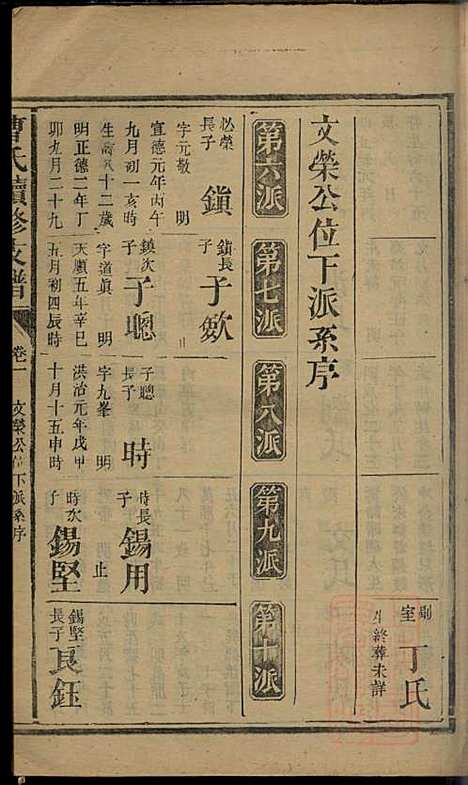 副室
丁氏
生終葬未詳
文榮公位下派系序
第六派
第七派
第八派
第九派
第十派
文榮長子
鎮
字元敬 明
宣德元年丙午
九月初一亥時
生 八十二歲
明正德二年丁
卯九月二十九
鎮長子
于欽
鎮次子
于聰
字道眞 明
天順五年辛巳
五月初四辰時
于聰長子
時
字九峯 明
洪治元年戊申
十月十五申時
時長子
錫用
止
時次子
錫堅
錫堅長子
良鈺
曹氏續修支譜
卷一
文榮公位下派系序